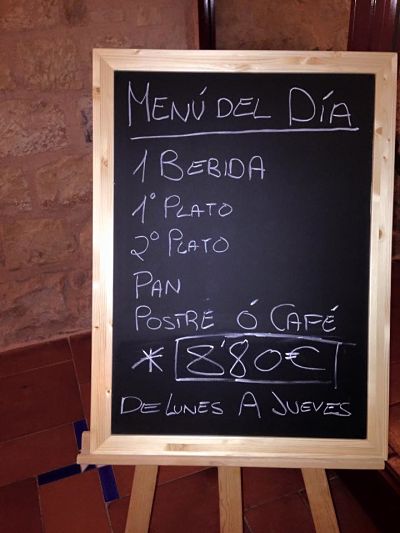 MENÚ DEL DÍA
1 BEBIDA
1º PLATO
2º PLATO
PAN
POSTRE Ó CAFÉ
* 8'80€
DE LUNES A JUEVES